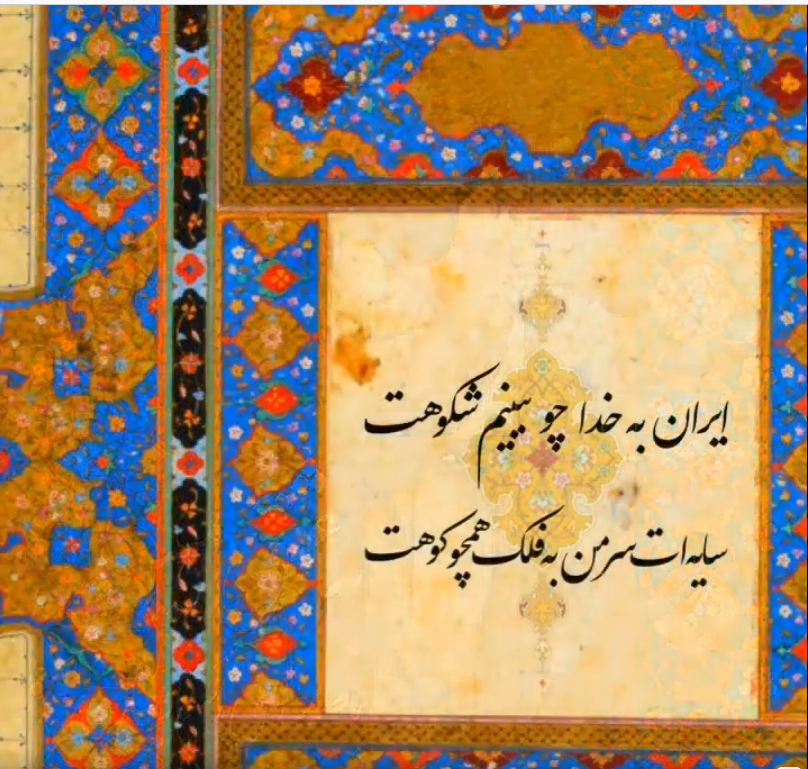 ایران به خدا چو ببینم شکوهت
سایه ات سر من به فلک همچو کوهت